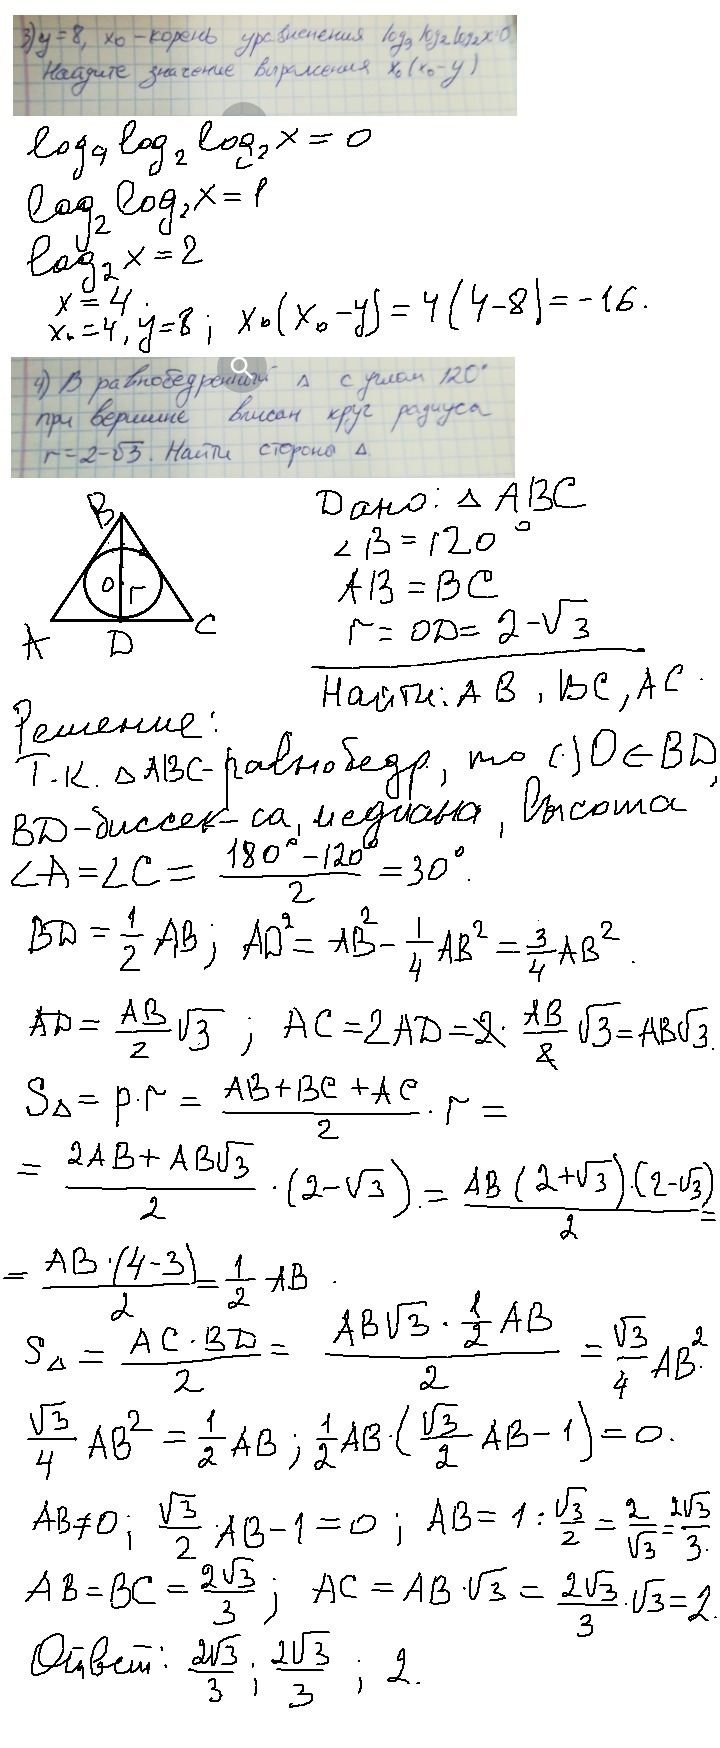 3) y=8, x₀ - корень уравнения log₉ log₂ log₂ x=0
Найдите значение выражения x₀(x₀-y)
log₉ log₂ log₂ x = 0
log₂ log₂ x = 1
log₂ x = 2
x = 4.
x₀=4, y=8; x₀(x₀-y)=4(4-8)=-16.
4) В равнобедренный Δ с углом 120°
при вершине вписан круг радиуса
r=2-√3. Найти стороны Δ
B
O r
A D C
Дано: Δ ABC
∠B=120°
AB=BC
r=OD=2-√3
Найти: AB, BC, AC.
Решение:
Т.К. ΔABC-равнобедр, то (·)O∈BD,
BD-биссек-са, медиана, высота
∠A=∠C= (180°-120°)/2 =30°.
BD = 1/2 AB; AD²= AB² - 1/4 AB² = 3/4 AB².
AD = AB/2 √3; AC=2AD=2· AB/2 √3=AB√3.
S_Δ = p·r = (AB+BC+AC)/2 · r =
= (2AB+AB√3)/2 · (2-√3) = (AB(2+√3)·(2-√3))/2 =
= (AB·(4-3))/2 = 1/2 AB.
S_Δ = (AC·BD)/2 = (AB√3 · 1/2 AB)/2 = √3/4 AB².
√3/4 AB² = 1/2 AB; 1/2 AB·(√3/2 AB-1)=0.
AB≠0; √3/2 ·AB-1=0; AB=1: √3/2 = 2/√3 = 2√3/3.
AB=BC= 2√3/3; AC=AB·√3 = 2√3/3 ·√3=2.
Ответ: 2√3/3; 2√3/3; 2.